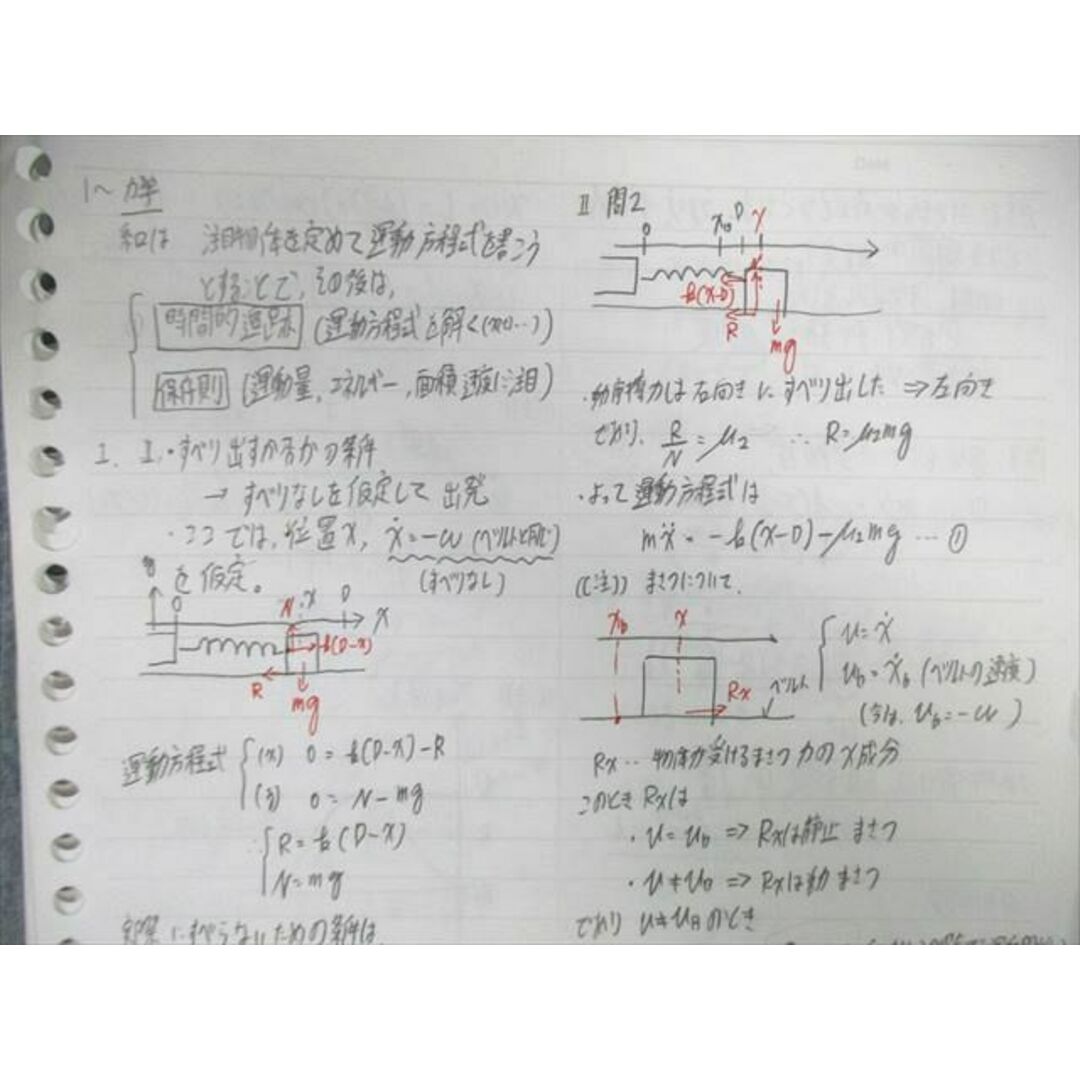 1〜 力学
和は 注目物体を定めて運動方程式を書こう
とすることで、その後は、
時間的追跡 (運動方程式を解く(x(t)…))
保存則 (運動量、エネルギー、面積速度に注目)
I. I.・すべり出すか否かの条件
→ すべりなしを仮定して出発
・ここでは、位置x, ẋ=-u (ベルトと同じ)
を仮定。 (すべりなし)
y 0 N x D x
k(D-x)
R
mg
運動方程式 (x) 0 = k(D-x)-R
(y) 0 = N-mg
R = k(D-x)
N = mg
実際にすべらないための条件は、
II 問2
0 x₀ D x
k(x-D) N
R
mg
・動摩擦力は右向きにすべり出した ⇒ 左向き
であり、 R/N = μ₂ ∴ R = μ₂mg
・よって運動方程式は
mẍ = -k(x-D)-μ₂mg … ①
((注)) まさつについて、
x_b x
Rx ベルト
u = ẋ
u_b = ẋ_b (ベルトの速度)
(今は、u_b = -u)
Rx … 物体が受けるまさつ力のx成分
このとき Rxは
・u = u_b ⇒ Rxは静止まさつ
・u ≠ u_b ⇒ Rxは動まさつ
であり u ≠ u_b のとき